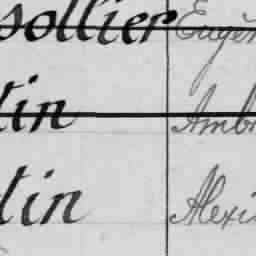 sollier Eugèn
tin Ambr
tin Alexi